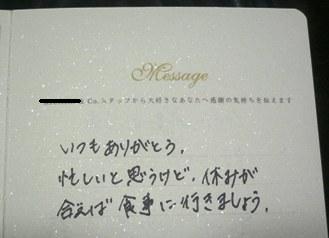 Message
Co.スタッフから大好きなあなたへ感謝の気持ちを伝えます
いつもありがとう。
忙しいと思うけど、休みが
合えば食事に行きましょう。